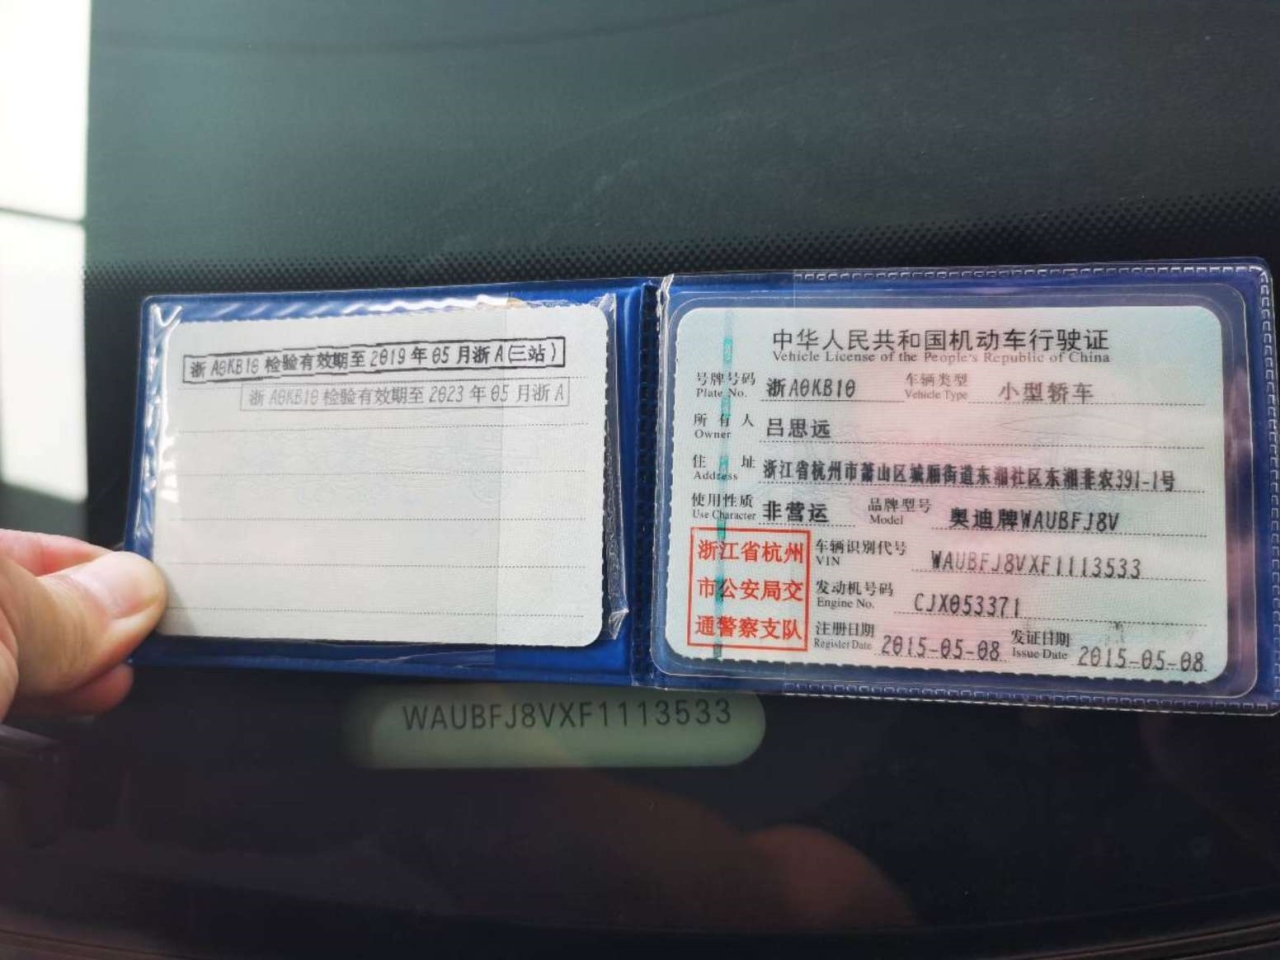 浙A0KB10检验有效期至2019年05月浙A(三站)
浙A0KB10检验有效期至2023年05月浙A
中华人民共和国机动车行驶证
Vehicle License of the People's Republic of China
号牌号码 浙A0KB10 车辆类型 小型轿车
Plate No. Vehicle Type
所有人 吕思远
Owner
住址 浙江省杭州市萧山区城厢街道东湘社区东湘非农391-1号
Address
使用性质 非营运 品牌型号 奥迪牌WAUBFJ8V
Use Character Model
浙江省杭州
市公安局交
通警察支队
车辆识别代号 WAUBFJ8VXF1113533
VIN
发动机号码 CJX053371
Engine No.
注册日期 2015-05-08 发证日期 2015-05-08
Register Date Issue Date
WAUBFJ8VXF1113533